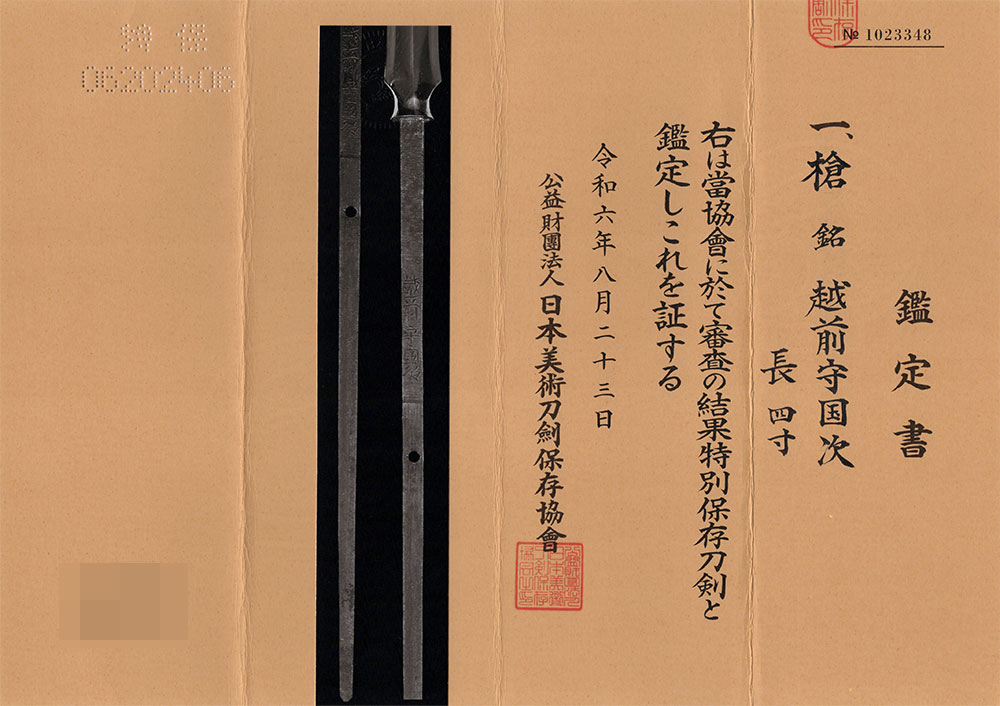 № 1023348
鑑定書
一、槍 銘 越前守国次
長 四寸
右は當協會に於て審査の結果特別保存刀剣と
鑑定しこれを証する
令和六年八月二十三日
公益財團法人 日本美術刀劍保存協會
特保
06202406
越前守